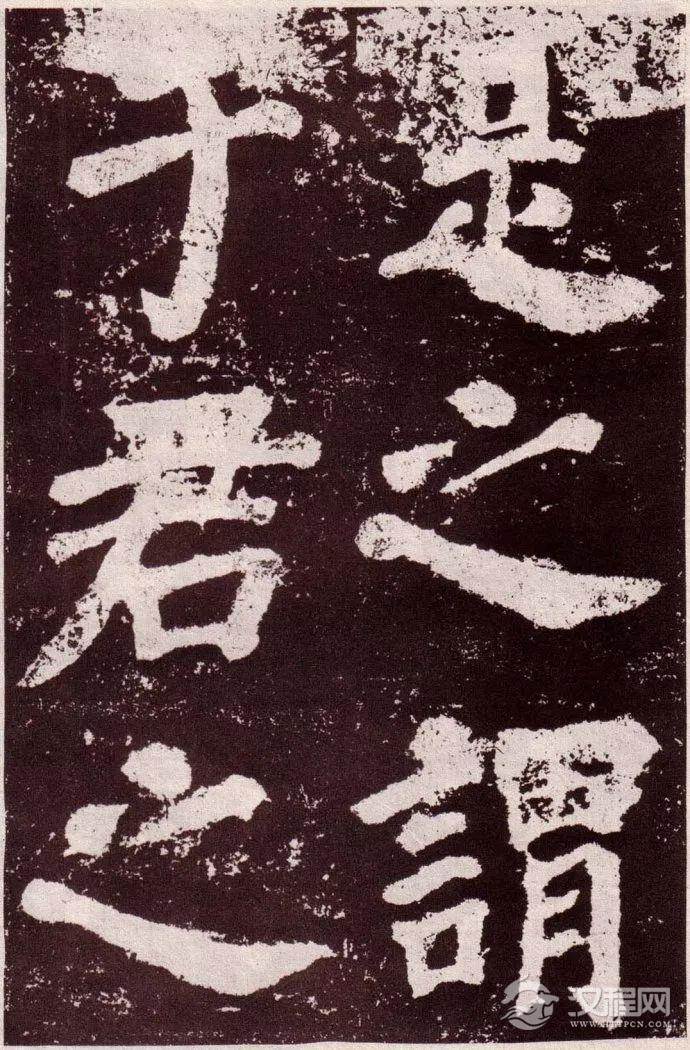 是之謂
乎君之
汉程网
WWW.HTTPCN.COM